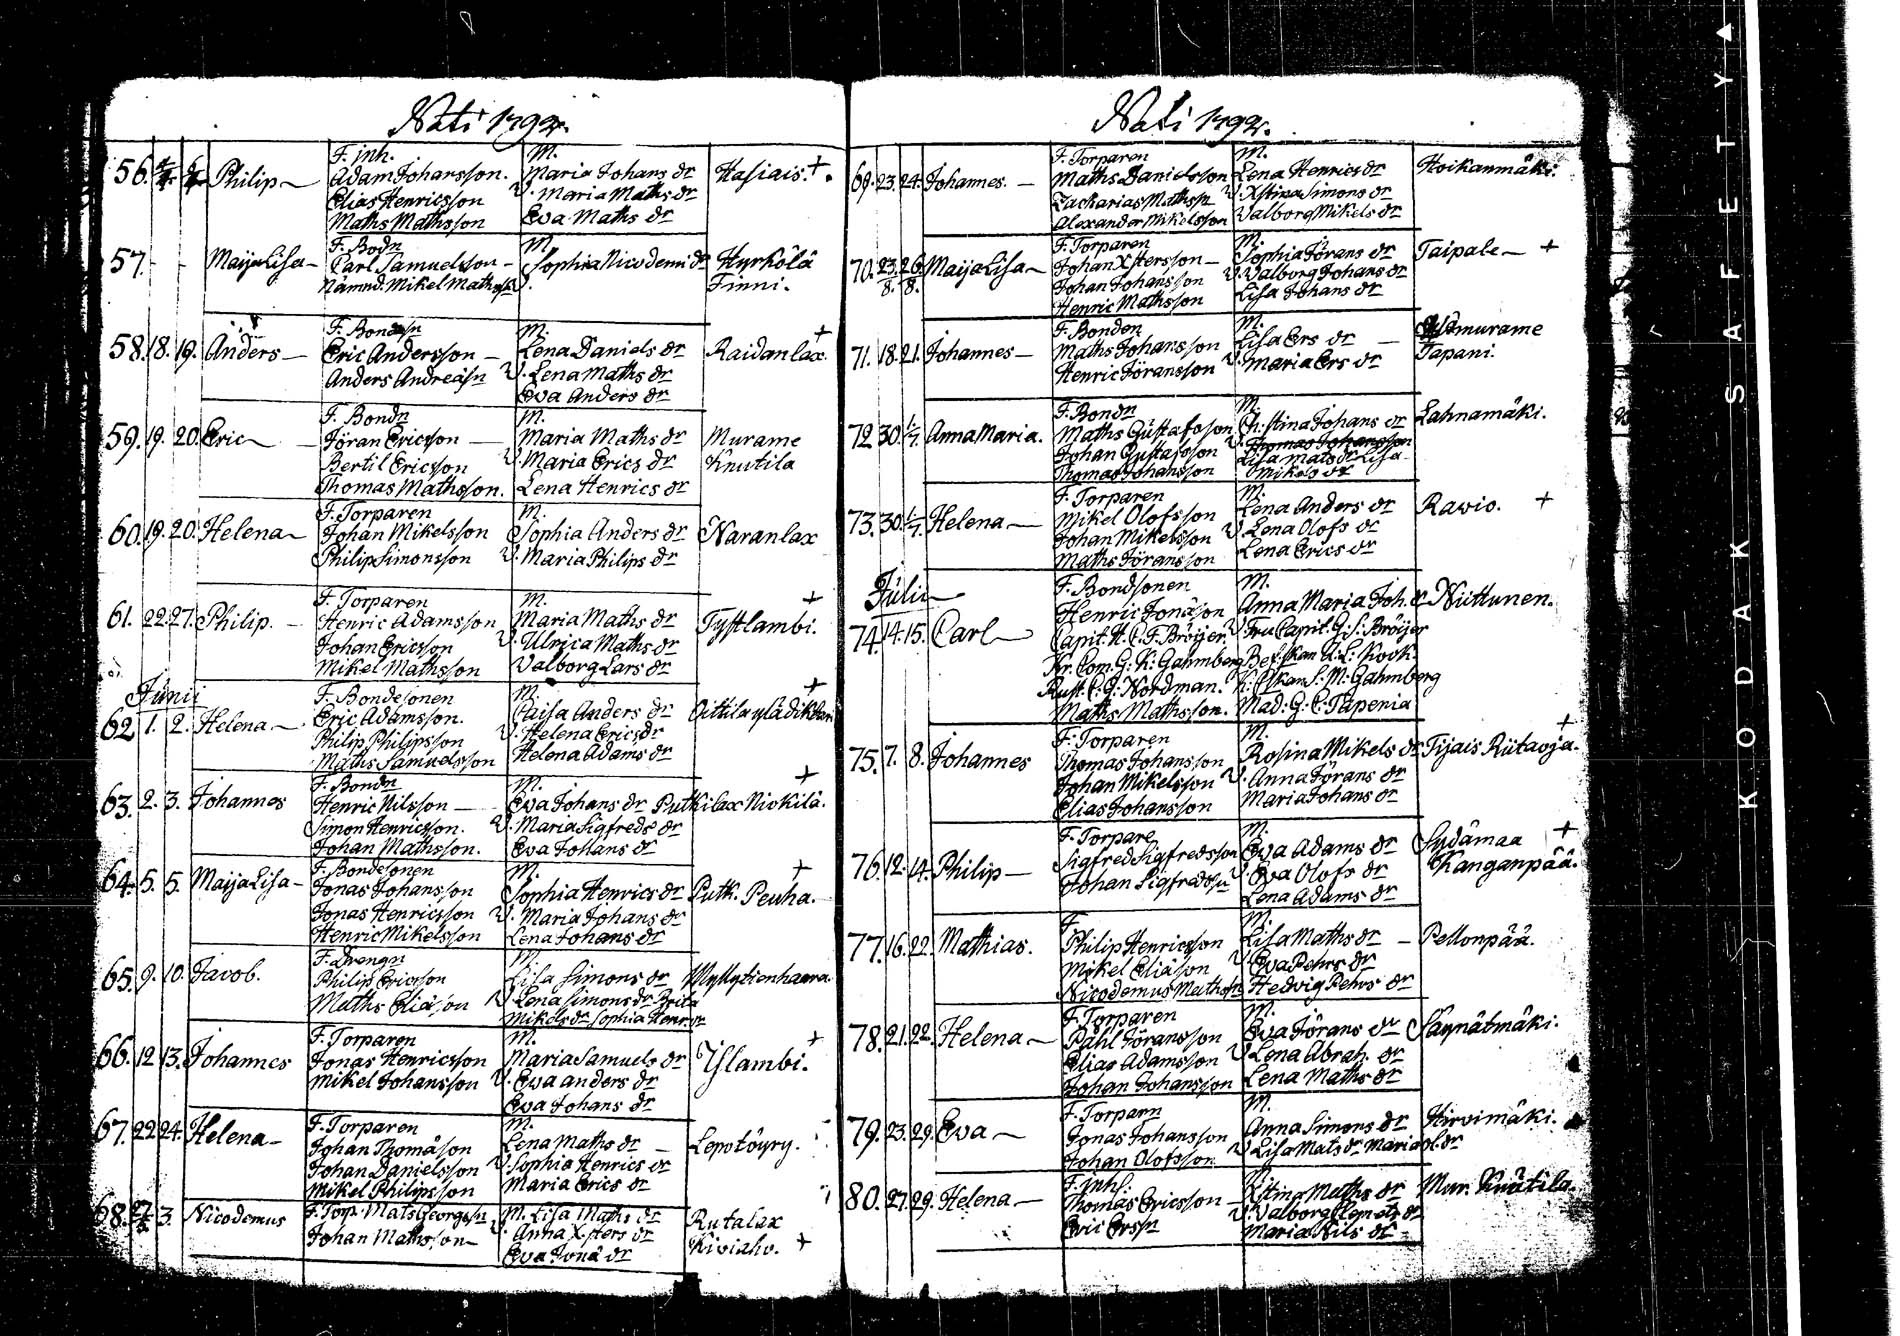 Nati 1792.
F. Inh. M.
56. 4/4 6/4 Philip Adam Johansson. Maria Johans dr Hasiais. +
Elias Henricsson V. Maria Maths dr
Maths Mathsson Eva Maths dr
F. Bodn M.
57. - - Maija Lisa Carl Samuelsson Sophia Nicodemi dr Hyrkölä
Nämnd. Mikel Mathss V. Finni.
F. Bondn M. +
58. 18. 19. Anders Eric Andersson Lena Daniels dr Raidanlax
Anders Andreäsn V. Lena Maths dr
Eva Anders dr
F. Bondn M.
59. 19. 20. Eric Jöran Ericsson Maria Maths dr Murame
Bertil Ericsson V. Maria Erics dr Knutila
Thomas Mathsson. Lena Henrics dr
F. Torparen M.
60. 19. 20. Helena Johan Mikelsson Sophia Anders dr Naranlax
Philip Simonsson V. Maria Philips dr
F. Torparen M. +
61. 22. 27. Philip. Henric Adamsson Maria Maths dr Tystlambi.
Johan Ericsson V. Ulrica Maths dr
Mikel Mathsson Valborg Lars dr
Junii F. Bondesonen M. +
62 1. 2. Helena Eric Adamsson. Caisa Anders dr Oittila
Philip Philipsson V. Helena Erics dr
Maths Samuelsson Helena Adams dr
F. Bondn M. +
63. 2. 3. Johannes Henric Nilsson Eva Johans dr Putkilax Nickilä.
Simon Henricsson. V. Maria Sigfreds dr
Johan Mathsson. Eva Johans dr
F. Bondesonen M. +
64. 5. 5. Maija Lisa Jonas Johansson Sophia Henrics dr Putk. Peuha.
Jonas Henricsson V. Maria Johans dr
Henric Mikelsson Lena Johans dr
F. Drengn M.
65. 9. 10. Jacob. Philip Ericsson Lisa Simons dr Myllytienhaara
Maths Eliäson V. Lena Simons dr Brita
Mikels dr Sophia Henr. dr
F. Torparen M. +
66. 12 13. Johannes Jonas Henricsson Maria Samuels dr Yslambi.
Mikel Johansson V. Eva anders dr
Eva Johans dr
F. Torparen M.
67. 22 24. Helena Johan Thomäson Lena Maths dr Lepotöyry.
Johan Danielsson V. Sophia Henrics dr
Mikel Philipsson Maria Erics dr
68. 3. Nicodemus F. Torp. Mats Georgssn M. Lisa Maths dr Rutalax
Johan Mathsson V. Anna Xsters dr Kiviaho. +
Eva Jonä dr
Nati 1792.
F. Torparen M.
69. 23. 24. Johannes. Maths Danielsson Lena Henrics dr Hoikanmäki.
Zackarias Mathssn V. Xstina Simons dr
Alexander Mikelsson Valborg Mikels dr
F. Torparen M.
70. 23. 26. Maija Lisa Johan Xstersson Sophia Jörans dr Taipale +
8. 8. Johan Johansson V. Valborg Johans dr
Henric Mathsson Lisa Johans dr
F. Bonden M.
71. 18. 21. Johannes Maths Johansson Lisa Ers dr murame
Henric Jöransson V. Maria Ers dr Tapani.
F. Bondn M.
72 30. 1/7. Anna Maria. Maths Gustafsson Christina Johans dr Lahnamäki.
Johan Gustafsson V. Thomas Johansson
Thomas Johansson Lisa Mats dr Lisa
Mikels dr
F. Torparen M.
73. 30. 1/7. Helena Mikel Olofsson Lena Anders dr Ravio. +
Johan Mikelsson V. Lena Olofs dr
Maths Jöransson Lena Erics dr
Julii F. Bondsonen M.
Henric Jonäson Anna Maria Joh. dr Niittunen.
74. 14. 15. Carl Capit. H. C. F. Bröijer V. Fru Capit. G: S: Bröijer
Kr. Com. G: K: Gahmberg Bef.skan U: L: Kock
Rust. C: G: Nordman. K: C:skan S: M: Gahmberg
Maths Mathsson. Mad: G: C: Tapenia
F. Torparen M. +
75. 7. 8. Johannes Thomas Johansson Rosina Mikels dr Tijais Riitaoja.
Johan Mikelsson V. Anna Jörans dr
Elias Johansson Maria Johans dr
F. Torpare M. +
76. 12. 14. Philip Sigfred Sigfredsson Eva Adams dr Sydämaa
Johan Sigfredssn V. Eva Olofs dr Kanganpää.
Lena Adams dr
F. M.
77. 16. 22. Mathias. Philip Henricsson Lisa Maths dr Pellonpää.
Mikel Eliäson V. Eva Pehrs dr
Nicodemus Mathssn Hedvig Pehrs dr
F. Torparen M.
78. 21. 22. Helena Påhl Jöransson Eva Jörans dr Säynätmäki.
Elias Adamsson V. Lena Abrah. dr
Johan Johansson Lena Maths dr
F. Torparn M.
79. 23. 29. Eva Jonas Johansson Anna Simons dr Hirvimäki.
Johan Olofsson V. Lisa Mats dr Maria Ol. dr
F. Inh.
80. 27. 29. Helena Thomas Ericsson Xstina Maths dr Mur. Knutila.
Eric Erssn V. Valborg Clemets dr
Maria Nils dr
KODAK SAFETY